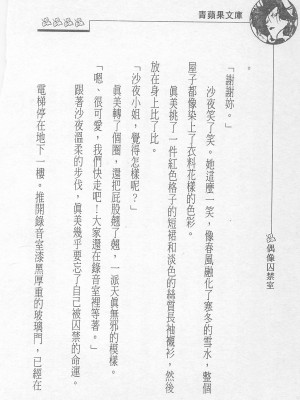 青蘋果文庫
偶像囚禁室
。
「謝謝妳。」
沙夜笑了笑。她這麼一笑，像春風融化了寒冬的雪水，整個
屋子都像染上了衣料花樣的色彩。
眞美挑了一件紅色格子的短裙和淡色的絲質長袖襯衫，然後
放在身上比了比。
「沙夜小姐，覺得怎樣呢？」
眞美轉了個圈，還把屁股翹了翹，一派天眞無邪的模樣。
「嗯、很可愛，我們快走吧！大家還在錄音室裡等著。」
跟著沙夜溫柔的步伐，眞美幾乎要忘了自己被囚禁的命運。
電梯停在地下一樓。推開錄音室漆黑厚重的玻璃門，已經在